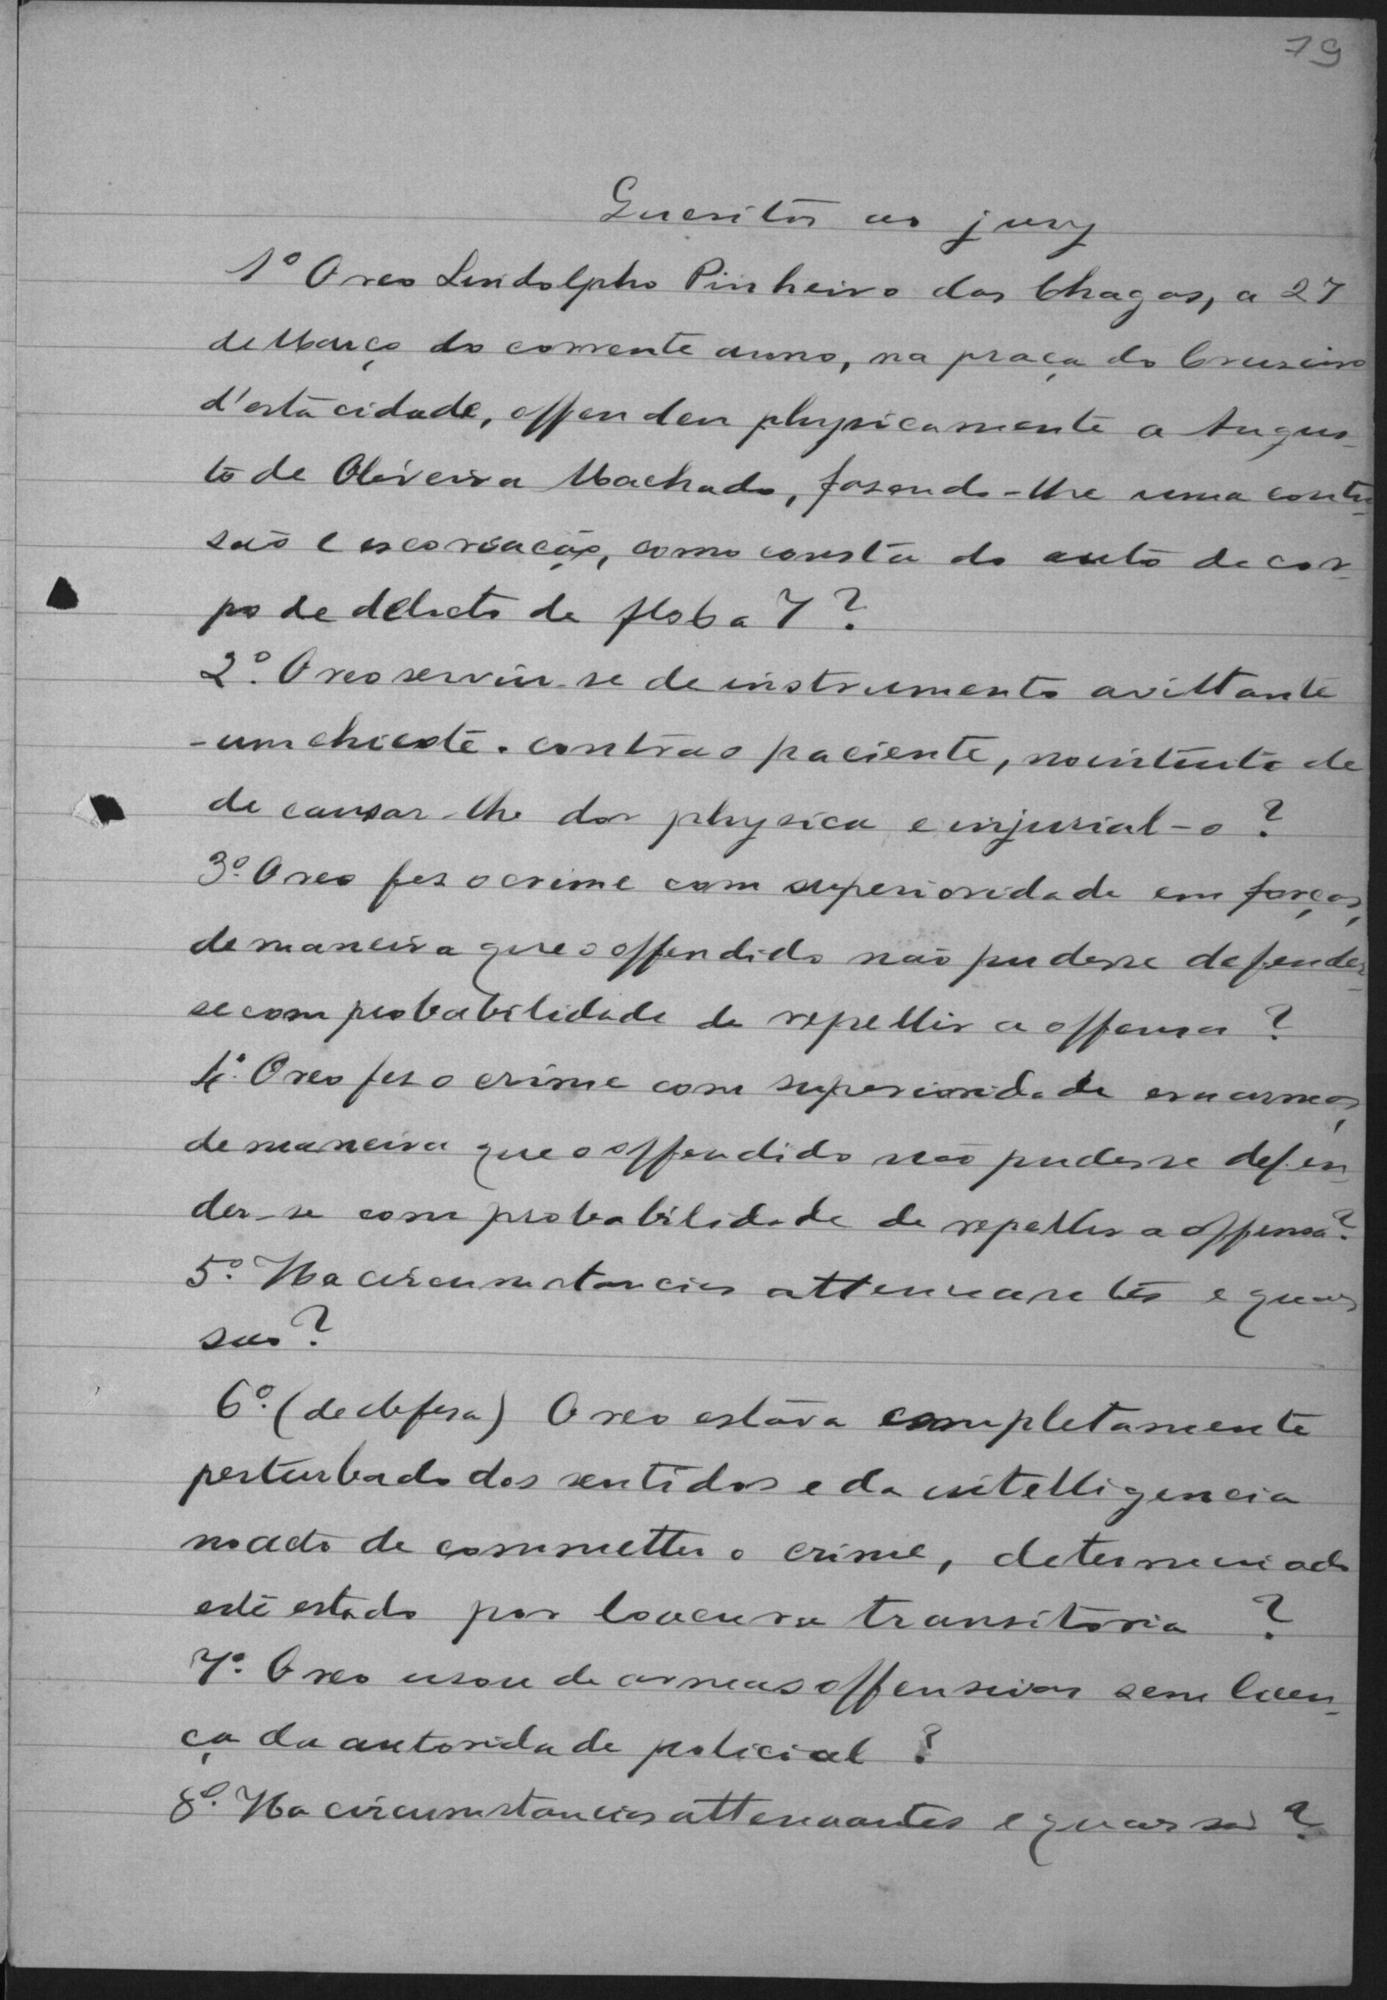 79
Quesitos ao jury
1º O reo Lindolpho Pinheiro das Chagas, a 27
de Março do corrente anno, na praça do Cruseiro
d'esta cidade, offendeu physicamente a Augus-
to de Oliveira Machado, fasendo-lhe uma contu-
são e escoriação, como consta do auto de cor-
po de delicto de folha 7?
2º. O reo serviu-se de instrumento aviltante
-um chicote- contra o paciente, no intuito de
de causar-lhe dor physica e injurial-o?
3º. O reo fes o crime com superioridade em forças,
de maneira que o offendido não pudesse defender-
se com probabilidade de repellir a offensa?
4º. O reo fes o crime com superioridade em armas,
de maneira que o offendido não pudesse defen-
der-se com probabilidade de repellir a offensa?
5º. Ha circumstancias attenuantes e quaes
são?
6º. (de defesa) O reo estava completamente
perturbado dos sentidos e da intelligencia
no acto de commetter o crime, determinado
este estado por loucura transitoria?
7º. O reo usou de armas offensivas sem licen-
ça da autoridade policial?
8º. Ha circumstancias attenuantes e quaes são?